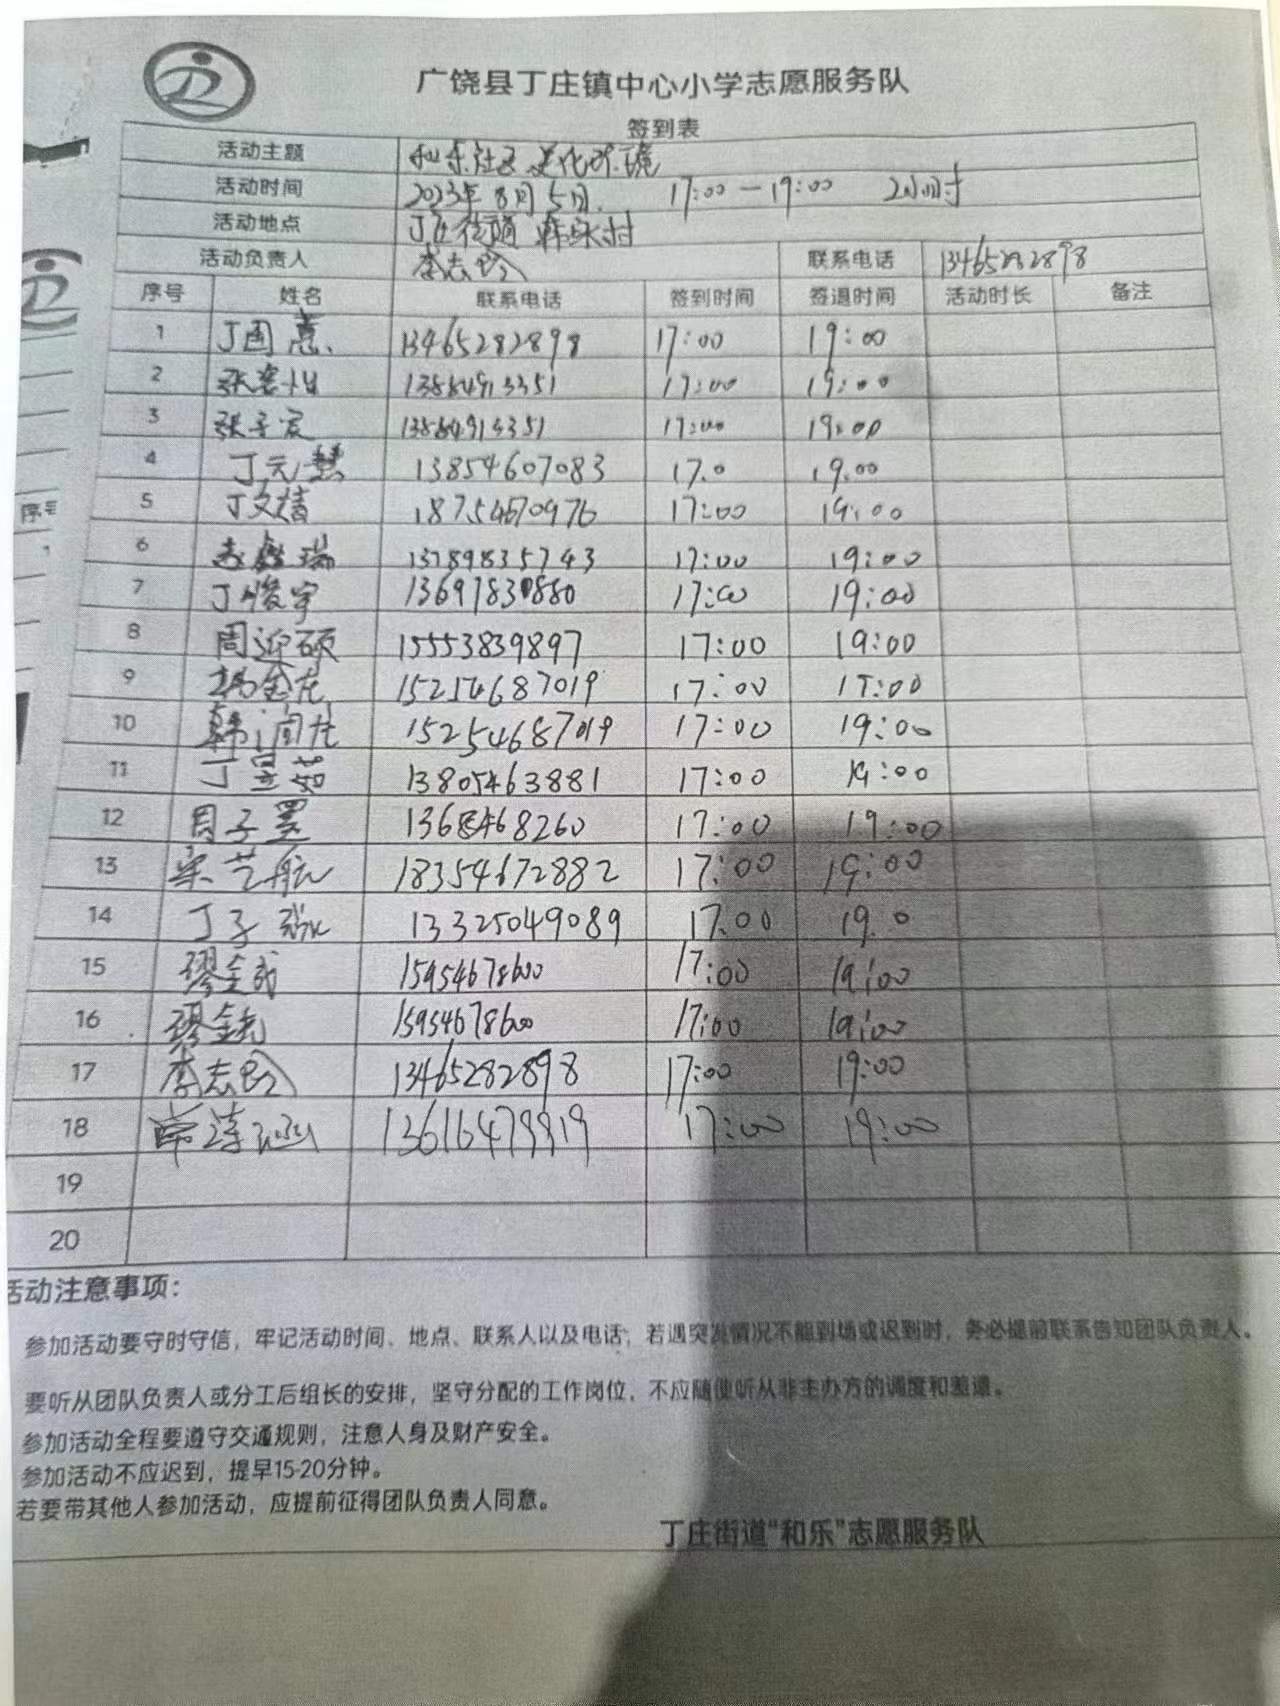 广饶县丁庄镇中心小学志愿服务队
签到表
活动主题 和乐社区 美化环境
活动时间 2023年8月5日. 17:00—19:00 2小时
活动地点 丁庄街道 韩 村
活动负责人 李志玲 联系电话 13465282898
序号 姓名 联系电话 签到时间 签退时间 活动时长 备注
1 丁国 13465282898 17:00 19:00
2 张 13884913351 17:00 19:00
3 张子宸 13884913351 17:00 19:00
4 丁元慧 13854607083 17.0 19.00
5 丁文 18754670976 17:00 19:00
6 赵鑫瑞 13789835743 17:00 19:00
7 丁俊宇 13697830880 17:00 19:00
8 周迎硕 15553839897 17:00 19:00
9 韩金龙 15254687019 17:00 17:00
10 韩润龙 15254687019 17:00 19:00
11 丁昱茹 13805463881 17:00 19:00
12 周子 1368468260 17:00 19:00
13 宋艺航 18354672882 17:00 19:00
14 丁子 13325049089 17.00 19.0
15 缪金成 15954678600 17:00 19:00
16 缪金 15954678600 17:00 19:00
17 李志玲 13465282898 17:00 19:00
18 常 涵 13616479919 17:00 19:00
19
20
序号
活动注意事项：
参加活动要守时守信，牢记活动时间、地点、联系人以及电话；若遇突发情况不能到场或迟到时，务必提前联系告知团队负责人。
要听从团队负责人或分工后组长的安排，坚守分配的工作岗位，不应随便听从非主办方的调度和差遣。
参加活动全程要遵守交通规则，注意人身及财产安全。
参加活动不应迟到，提早15-20分钟。
若要带其他人参加活动，应提前征得团队负责人同意。
丁庄街道“和乐”志愿服务队